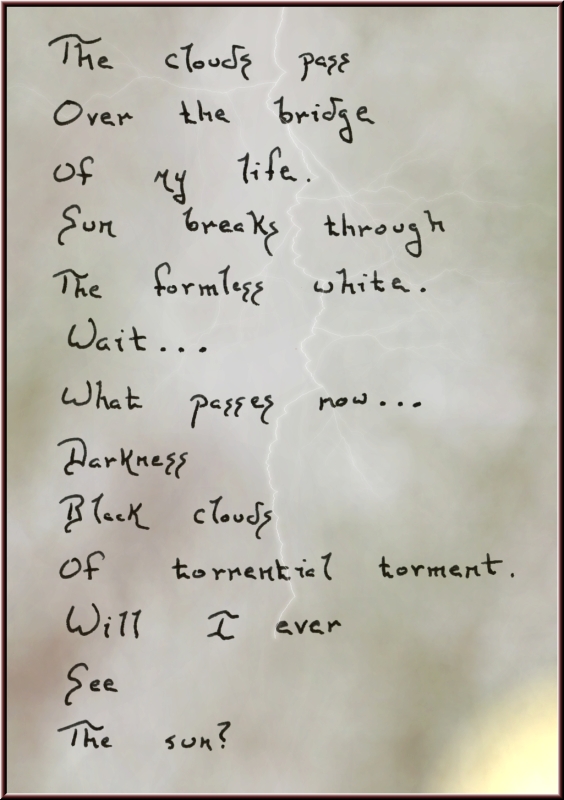 The clouds pass
Over the bridge
Of my life.
Sun breaks through
The formless white.
Wait...
What passes now...
Darkness
Black clouds
Of torrential torment.
Will I ever
See
The sun?